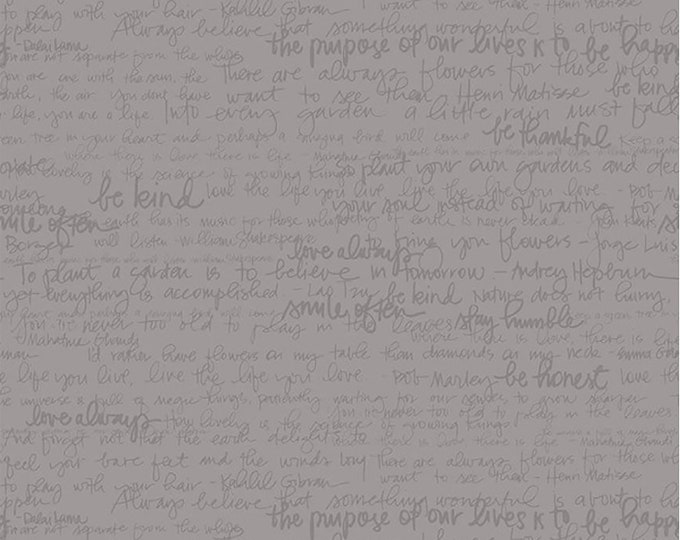 to play with your hair - Kahlil Gibran Always believe that something wonderful is about to
happen - Dalai Lama the purpose of our lives is to be happy
are not separate from the whole
you are one with the sun, the There are always flowers for those who
earth, the air you don't have want to see them - Henri Matisse be kind
life, you are a life. Into every garden a little rain must fall
green tree in your heart and perhaps a singing bird will come be thankful Keep a
where there is love there is life - Mahatma Ghandi
How lovely is the science of growing things plant your own gardens and
be kind love the life you live live the life you love - Bob
Marley your soul instead of waiting for
someone
smile often earth has its music for those who
Borges will listen - William Shakespeare to bring you flowers - Jorge Luis
love always
To plant a garden is to believe in tomorrow - Audrey Hepburn
yet everything is accomplished. - Lao Tzu be kind Nature does not hurry,
heart and perhaps a singing bird will come smile often
You're never too old to play in the leaves stay humble
Mahatma Ghandi where there is love, there is life
I'd rather have flowers on my table than diamonds on my neck - Emma
life you live, live the life you love. - Bob Marley be honest love the
universe is full of magic things, patiently waiting for our senses to grow sharper
you're never too old to play in the leaves
love always How lovely is the science of growing things
And forget not that the earth delights where there is love there is life - Mahatma Ghandi
feel your bare feet and the winds long There are always flowers for those who
want to see them - Henri Matisse
to play with your hair - Kahlil Gibran
Always believe that something wonderful is about to
happen
- Dalai Lama the purpose of our lives is to be happy
are not separate from the whole